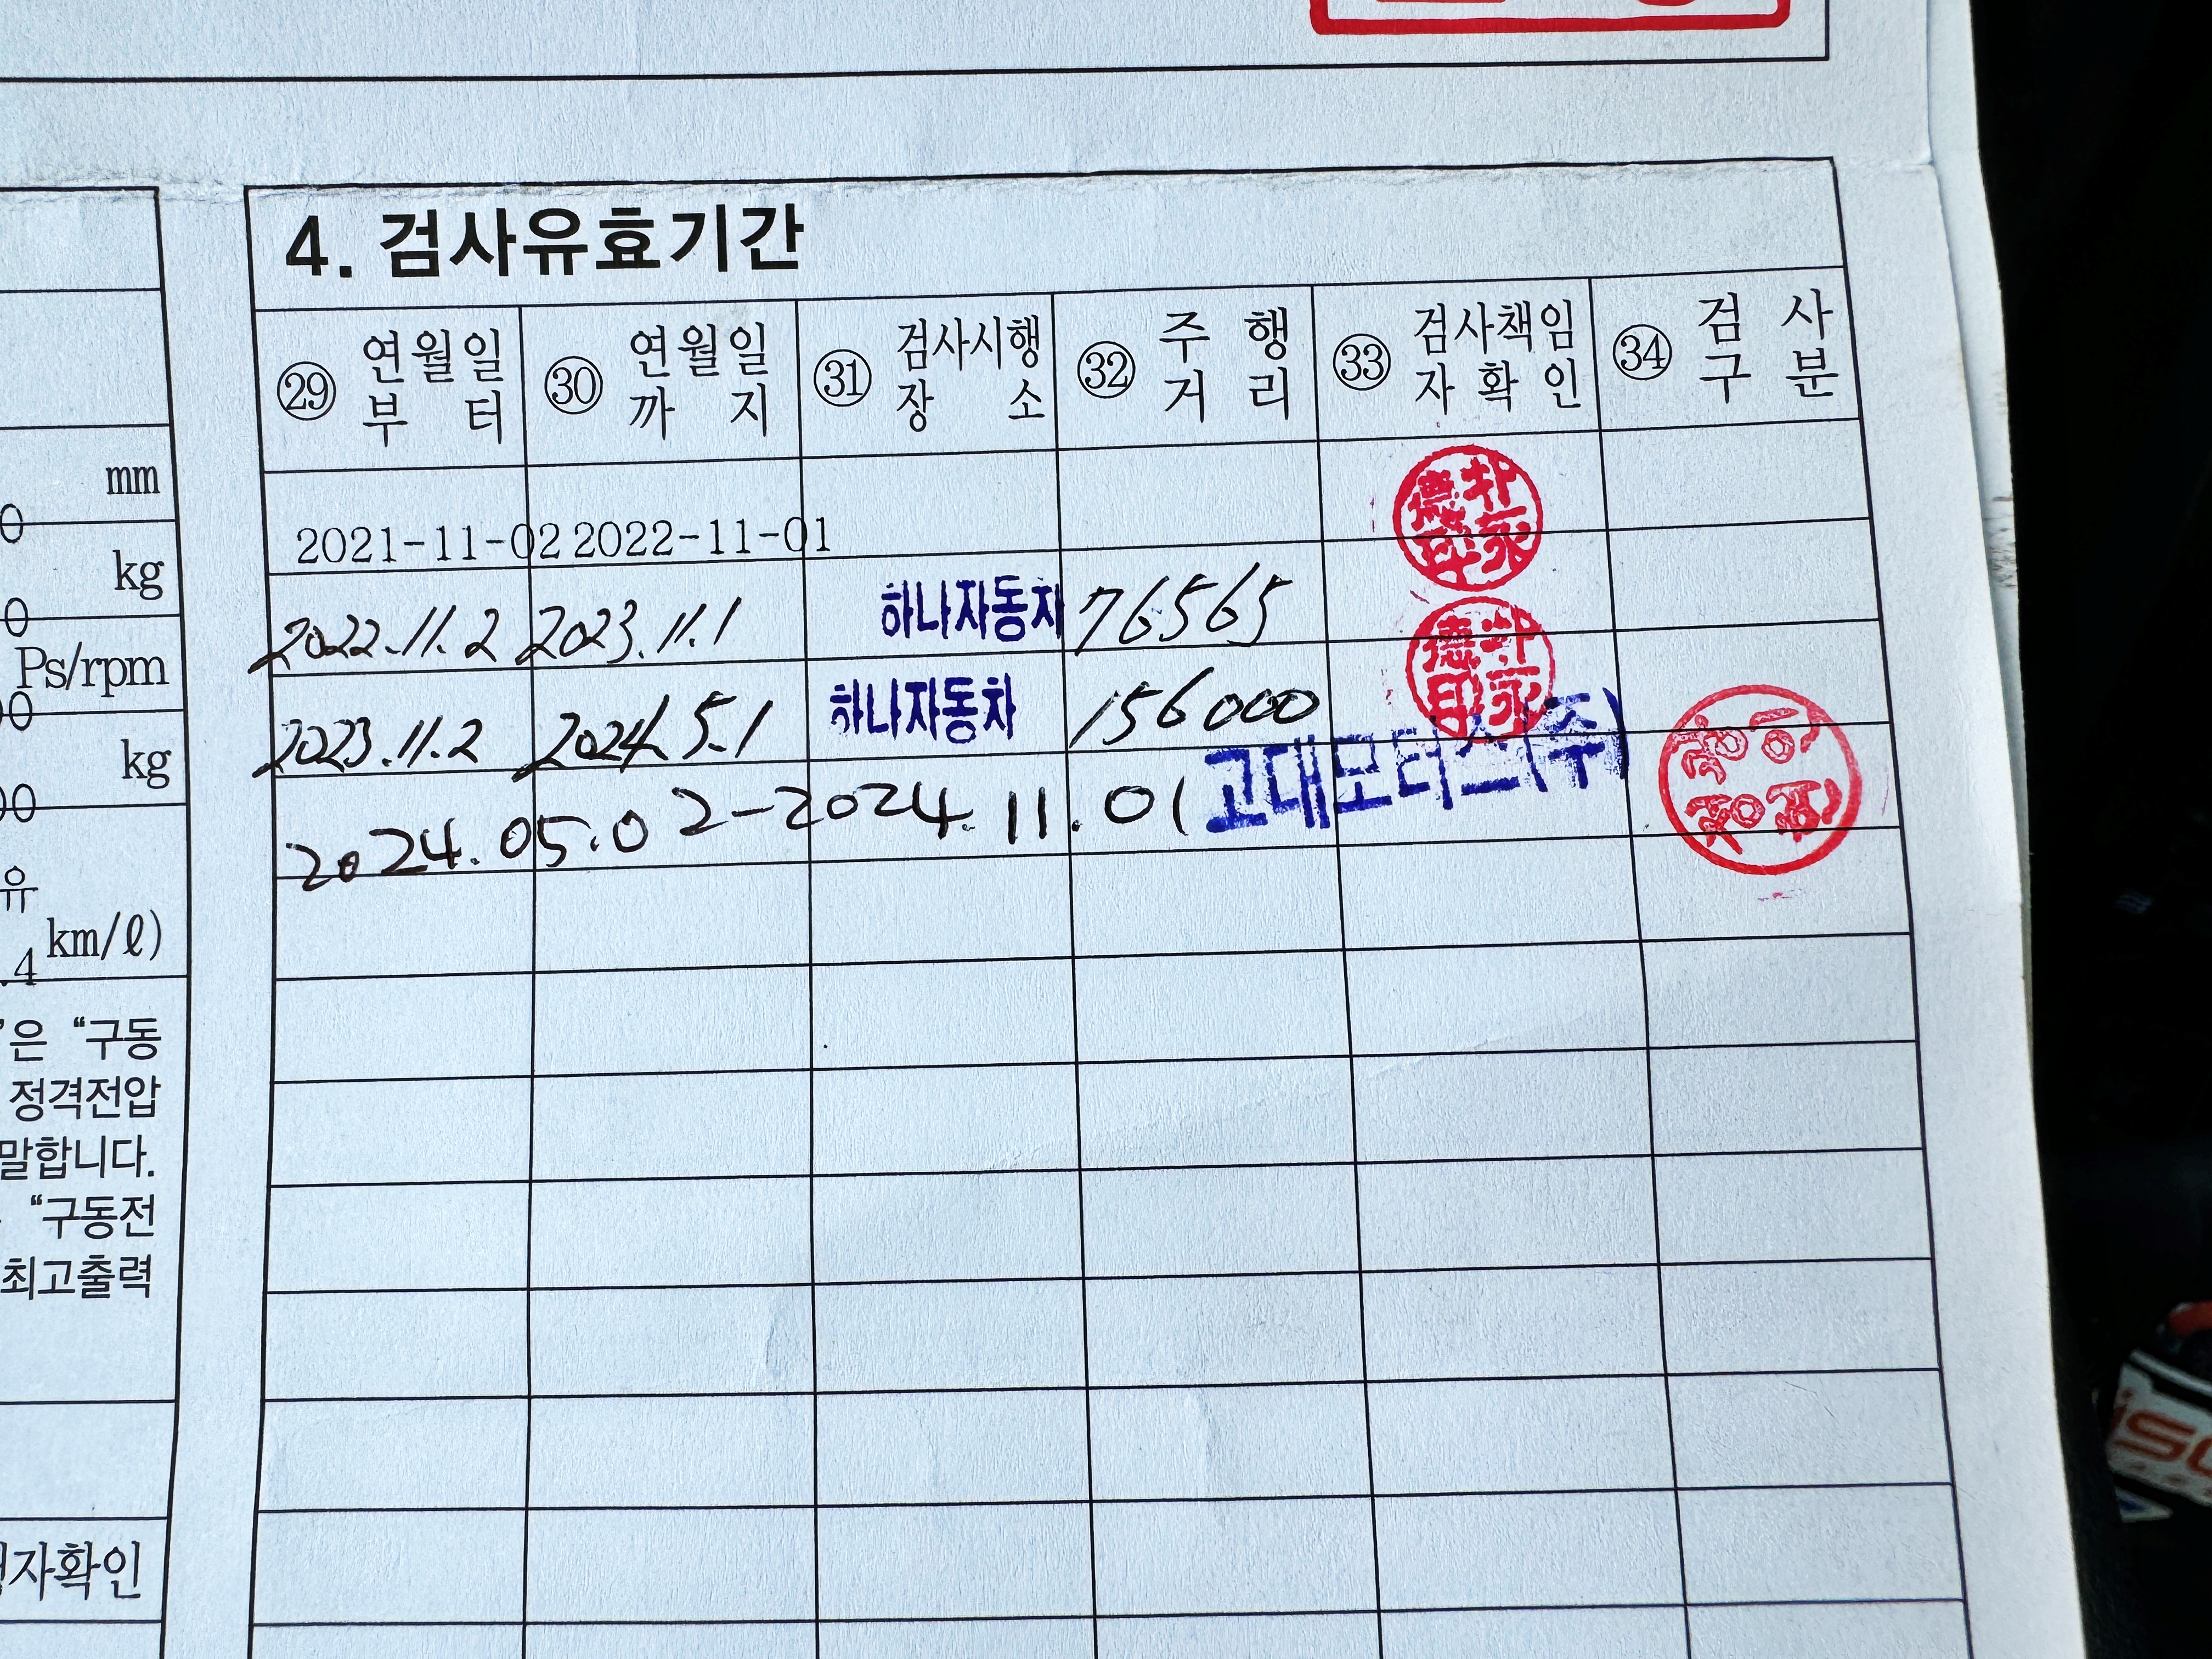 4. 검사유효기간
㉙ 연월일부터 ㉚ 연월일까지 ㉛ 검사시행장소 ㉜ 주행거리 ㉝ 검사책임자확인 ㉞ 검사구분
2021-11-02 2022-11-01
2022.11.2 2023.11.1 하나자동차 76565
2023.11.2 2024.5.1 하나자동차 156000
2024.05.02-2024.11.01 고대모터스(주)
mm
0
kg
0
Ps/rpm
00
kg
00
유
km/ℓ)
.4
"은 "구동
정격전압
말합니다.
"구동전
최고출력
자확인